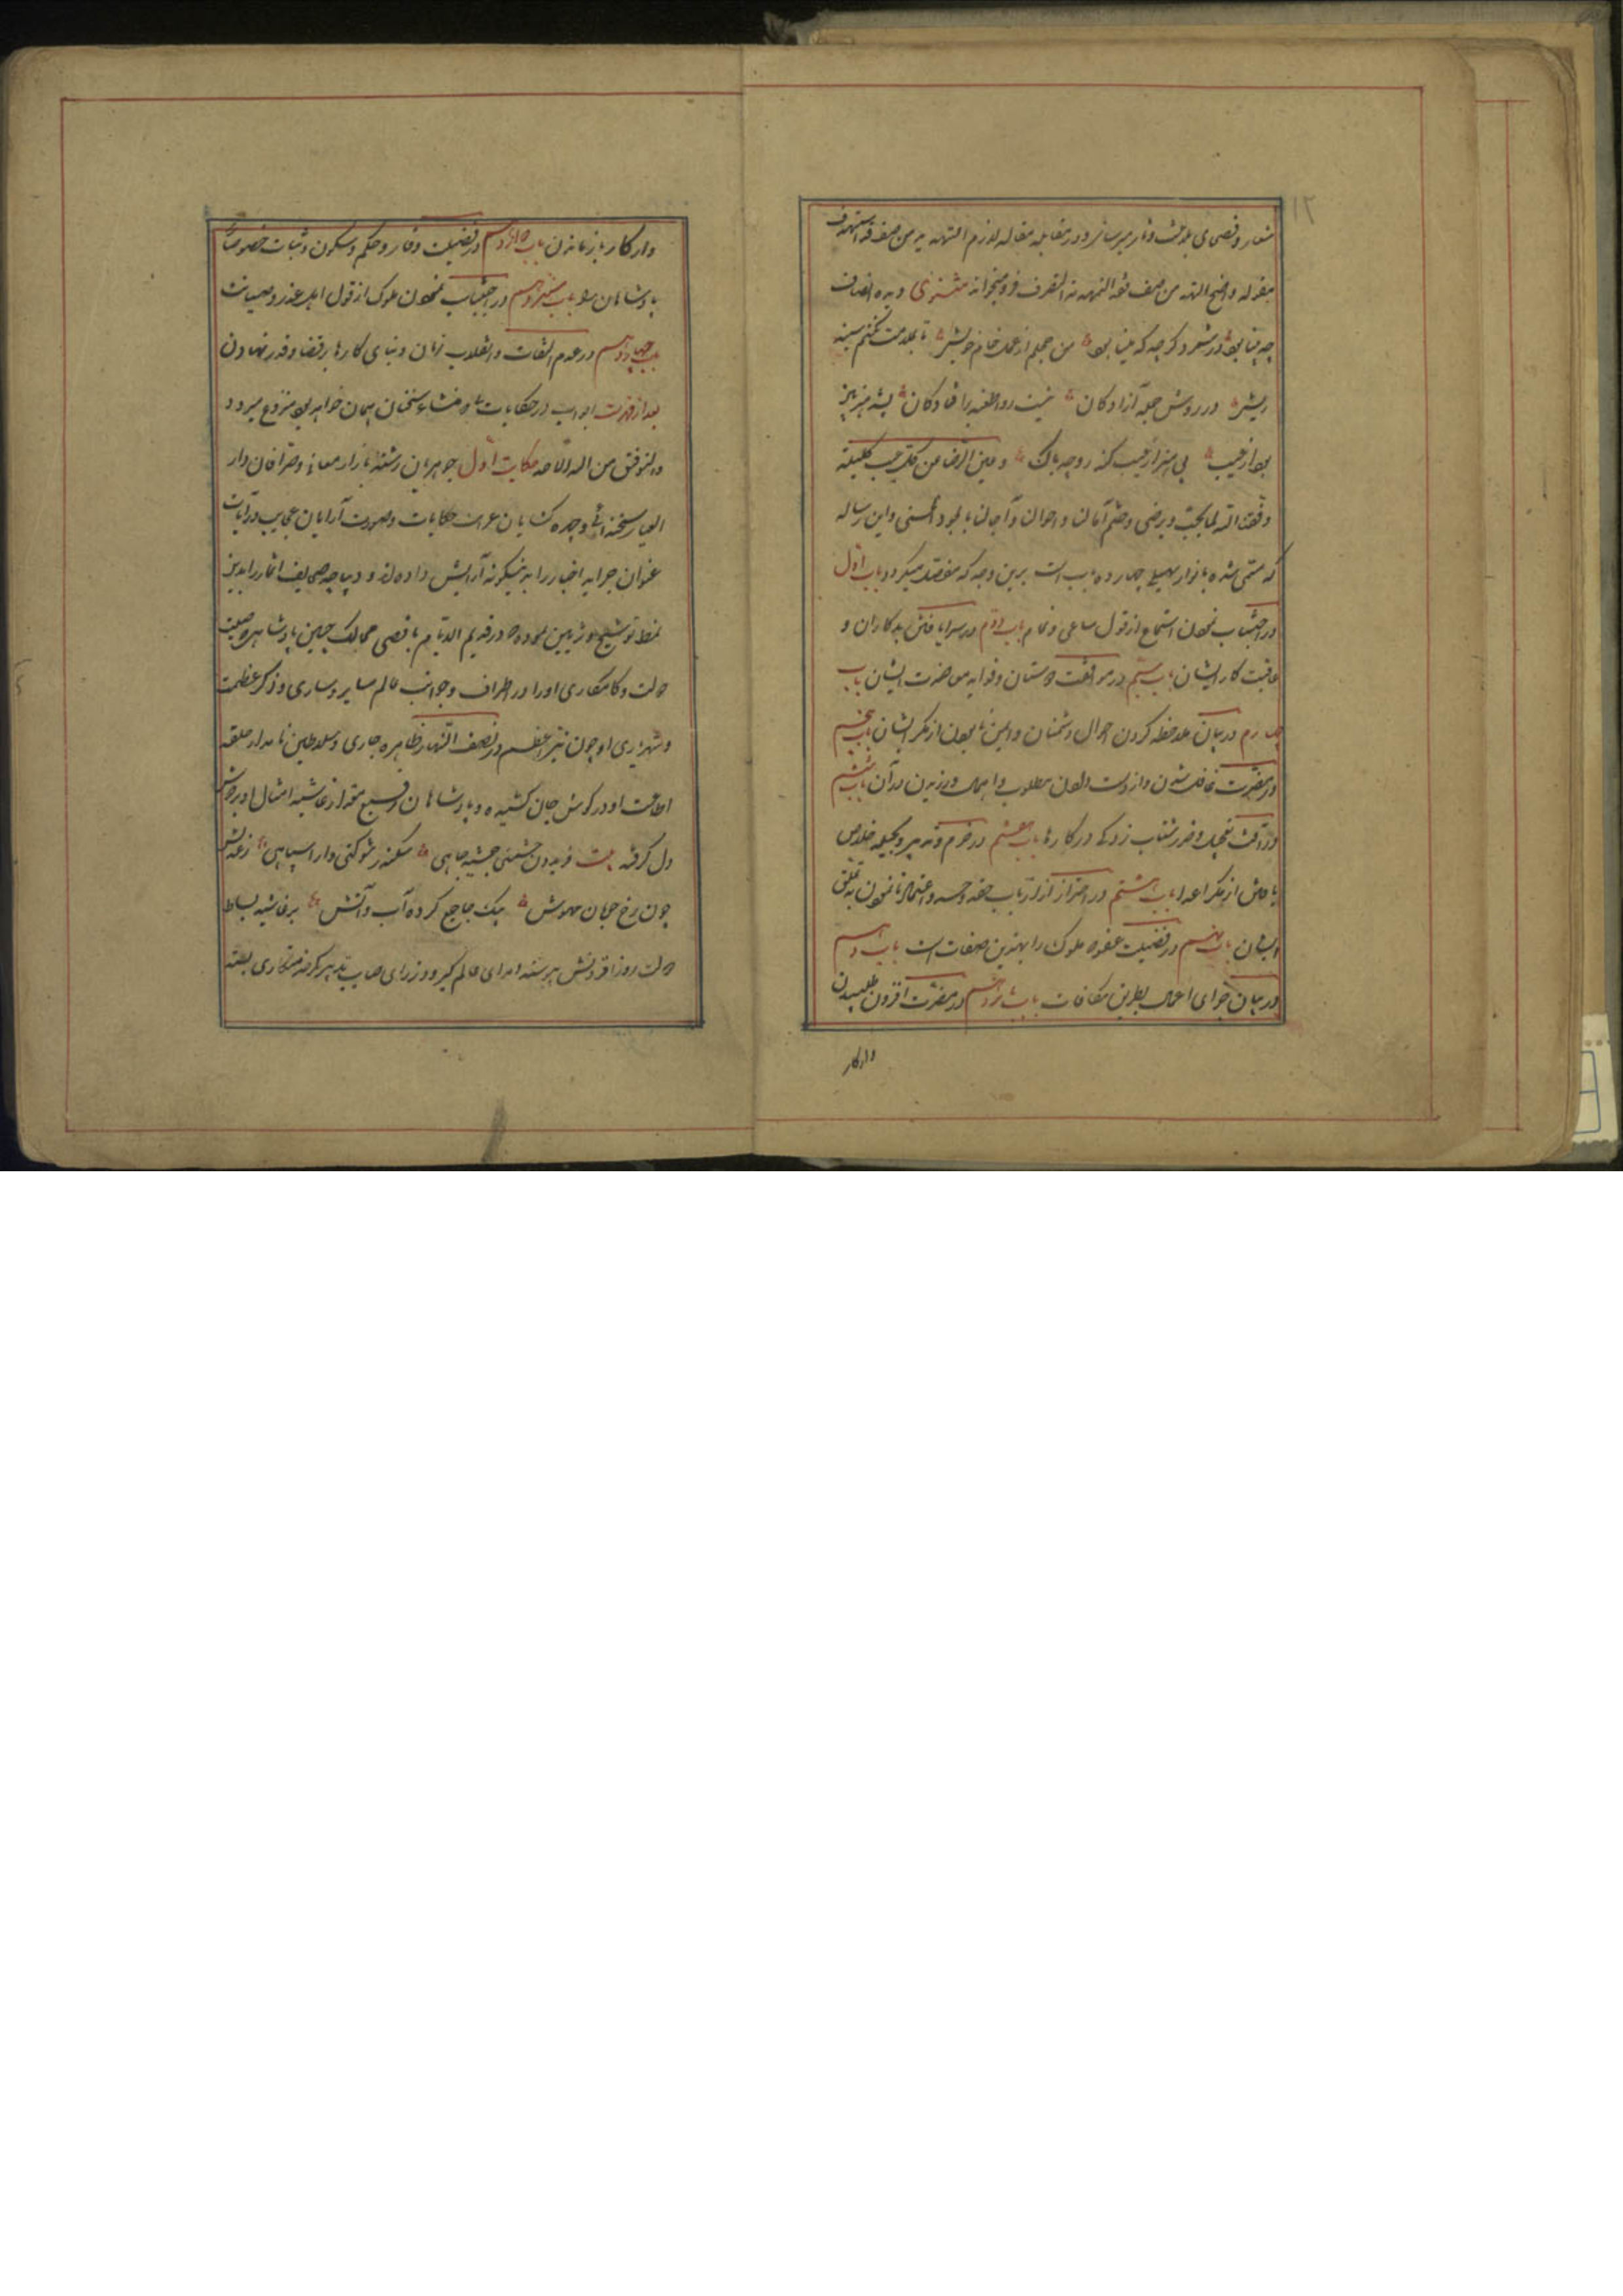 مقوله واضح التهدید من صنف فقد استهدف
چه بینا بود در شعر و گرچه که بینا بود من خجلم از عمل خام خویش تا بملامت نکنم سینه
ریش در روش جمله آزادگان نیست روا طعنه بر افتادگان
بود از عیب بی هنر از عیب کند رو چه باک و عین الرضا عن کل عیب کلیلة
وفقنا الله لما یحب و یرضی و ختم آمالنا و احوالنا و آجالنا بالجود الحسنی و این رساله
که مسمی شده بانوار سهیلی چهارده باب است برین وجه که مفصل میگردد باب اول
در اجتناب نمودن از استماع قول ساعی و نمام باب دوم در سزا یافتن بدکاران و
عاقبت کار ایشان باب سیم در موافقت دوستان و فواید معاضدت ایشان باب
چهارم در بیان ملاحظه کردن احوال دشمنان و ایمن نابودن از مکر ایشان باب پنجم
در مضرت غافل شدن و از دست دادن مطلوب و اهمال ورزیدن در آن باب ششم
در آفت تعجیل و ضرر شتاب زدگی در کارها باب هفتم در حزم و تدبیر و بحیله خلاص
یافتن از مکر اعدا باب هشتم در احتراز از ارباب حقد و حسد و اعتماد نانمودن به تملق
ایشان باب نهم در فضیلت عفو که ملوک را بهترین صفات است باب دهم
در بیان جزای اعمال بطریق مکافات باب یازدهم در مضرت افزون طلبیدن
وازکار
واز کار باز ماندن باب دوازدهم در فضیلت وقار و حلم و سکون و ثبات خصوصاً
پادشاهان را باب سیزدهم در اجتناب نمودن ملوک از قول اهل غدر و خیانت
باب چهاردهم در عدم التفات و انقلاب زمان و بنای کارها بر قضا و قدر نهادن
بعد از فهرست ابواب در حکایات که منشاء سخنان همان خواهد بود شروع میرود
والتوفیق من الله الاحد حکایت اول جوهریان رشته بازار معانی و صرافان دار
العیار سخندانی و چهره گشایان عرایس حکایات و صورت آرایان عجایب روایات
عنوان جراید اخبار را به نیکونه آرایش داده اند و دیباچه صحایف اثمار را بدین
نمط توشیح و تزیین نموده که در قدیم الایام باقصی ممالک چین پادشاهی بود که صیت
دولت و کامکاری او در اطراف و جوانب عالم سایر و ساری و ذکر عظمت
و شهریاری او چون نیر اعظم در نصف النهار ظاهر و جاری و سلاطین نامدار حلقه
اطاعت او در گوش جان کشیده و پادشاهان رفیع مقدار غاشیه امتثال او بر دوش
دل گرفته بیت فریدون حشمتی جمشید جاهی سکندر شوکتی دارا سپاهی ز عدلش
چون رخ خوبان مهوش بیک جا جمع کرده آب و آتش بر حاشیه بساط
دولت روز افزونش پیوسته امرای عالم گیر و وزرای صایب تدبیر کمر خدمتکاری بسته